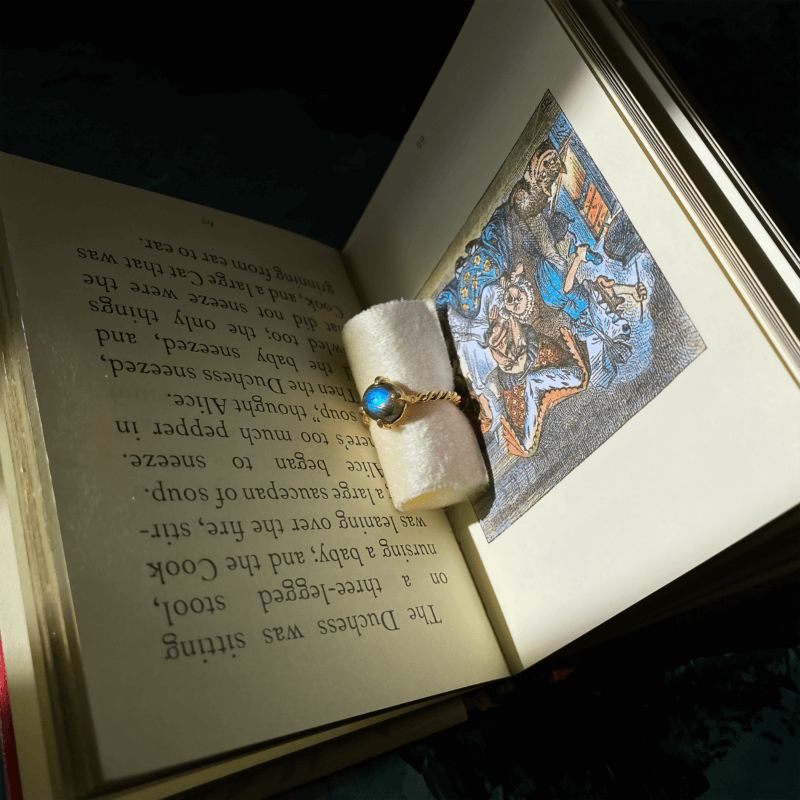 The Duchess was sitting
on a three-legged stool,
nursing a baby; and the Cook
was leaning over the fire, stir-
a large saucepan of soup.
Alice began to sneeze.
here's too much pepper in
soup," thought Alice.
Then the Duchess sneezed,
the baby sneezed, and
wled, too; the only things
hat did not sneeze were the
Cook, and a large Cat that was
grinning from ear to ear.